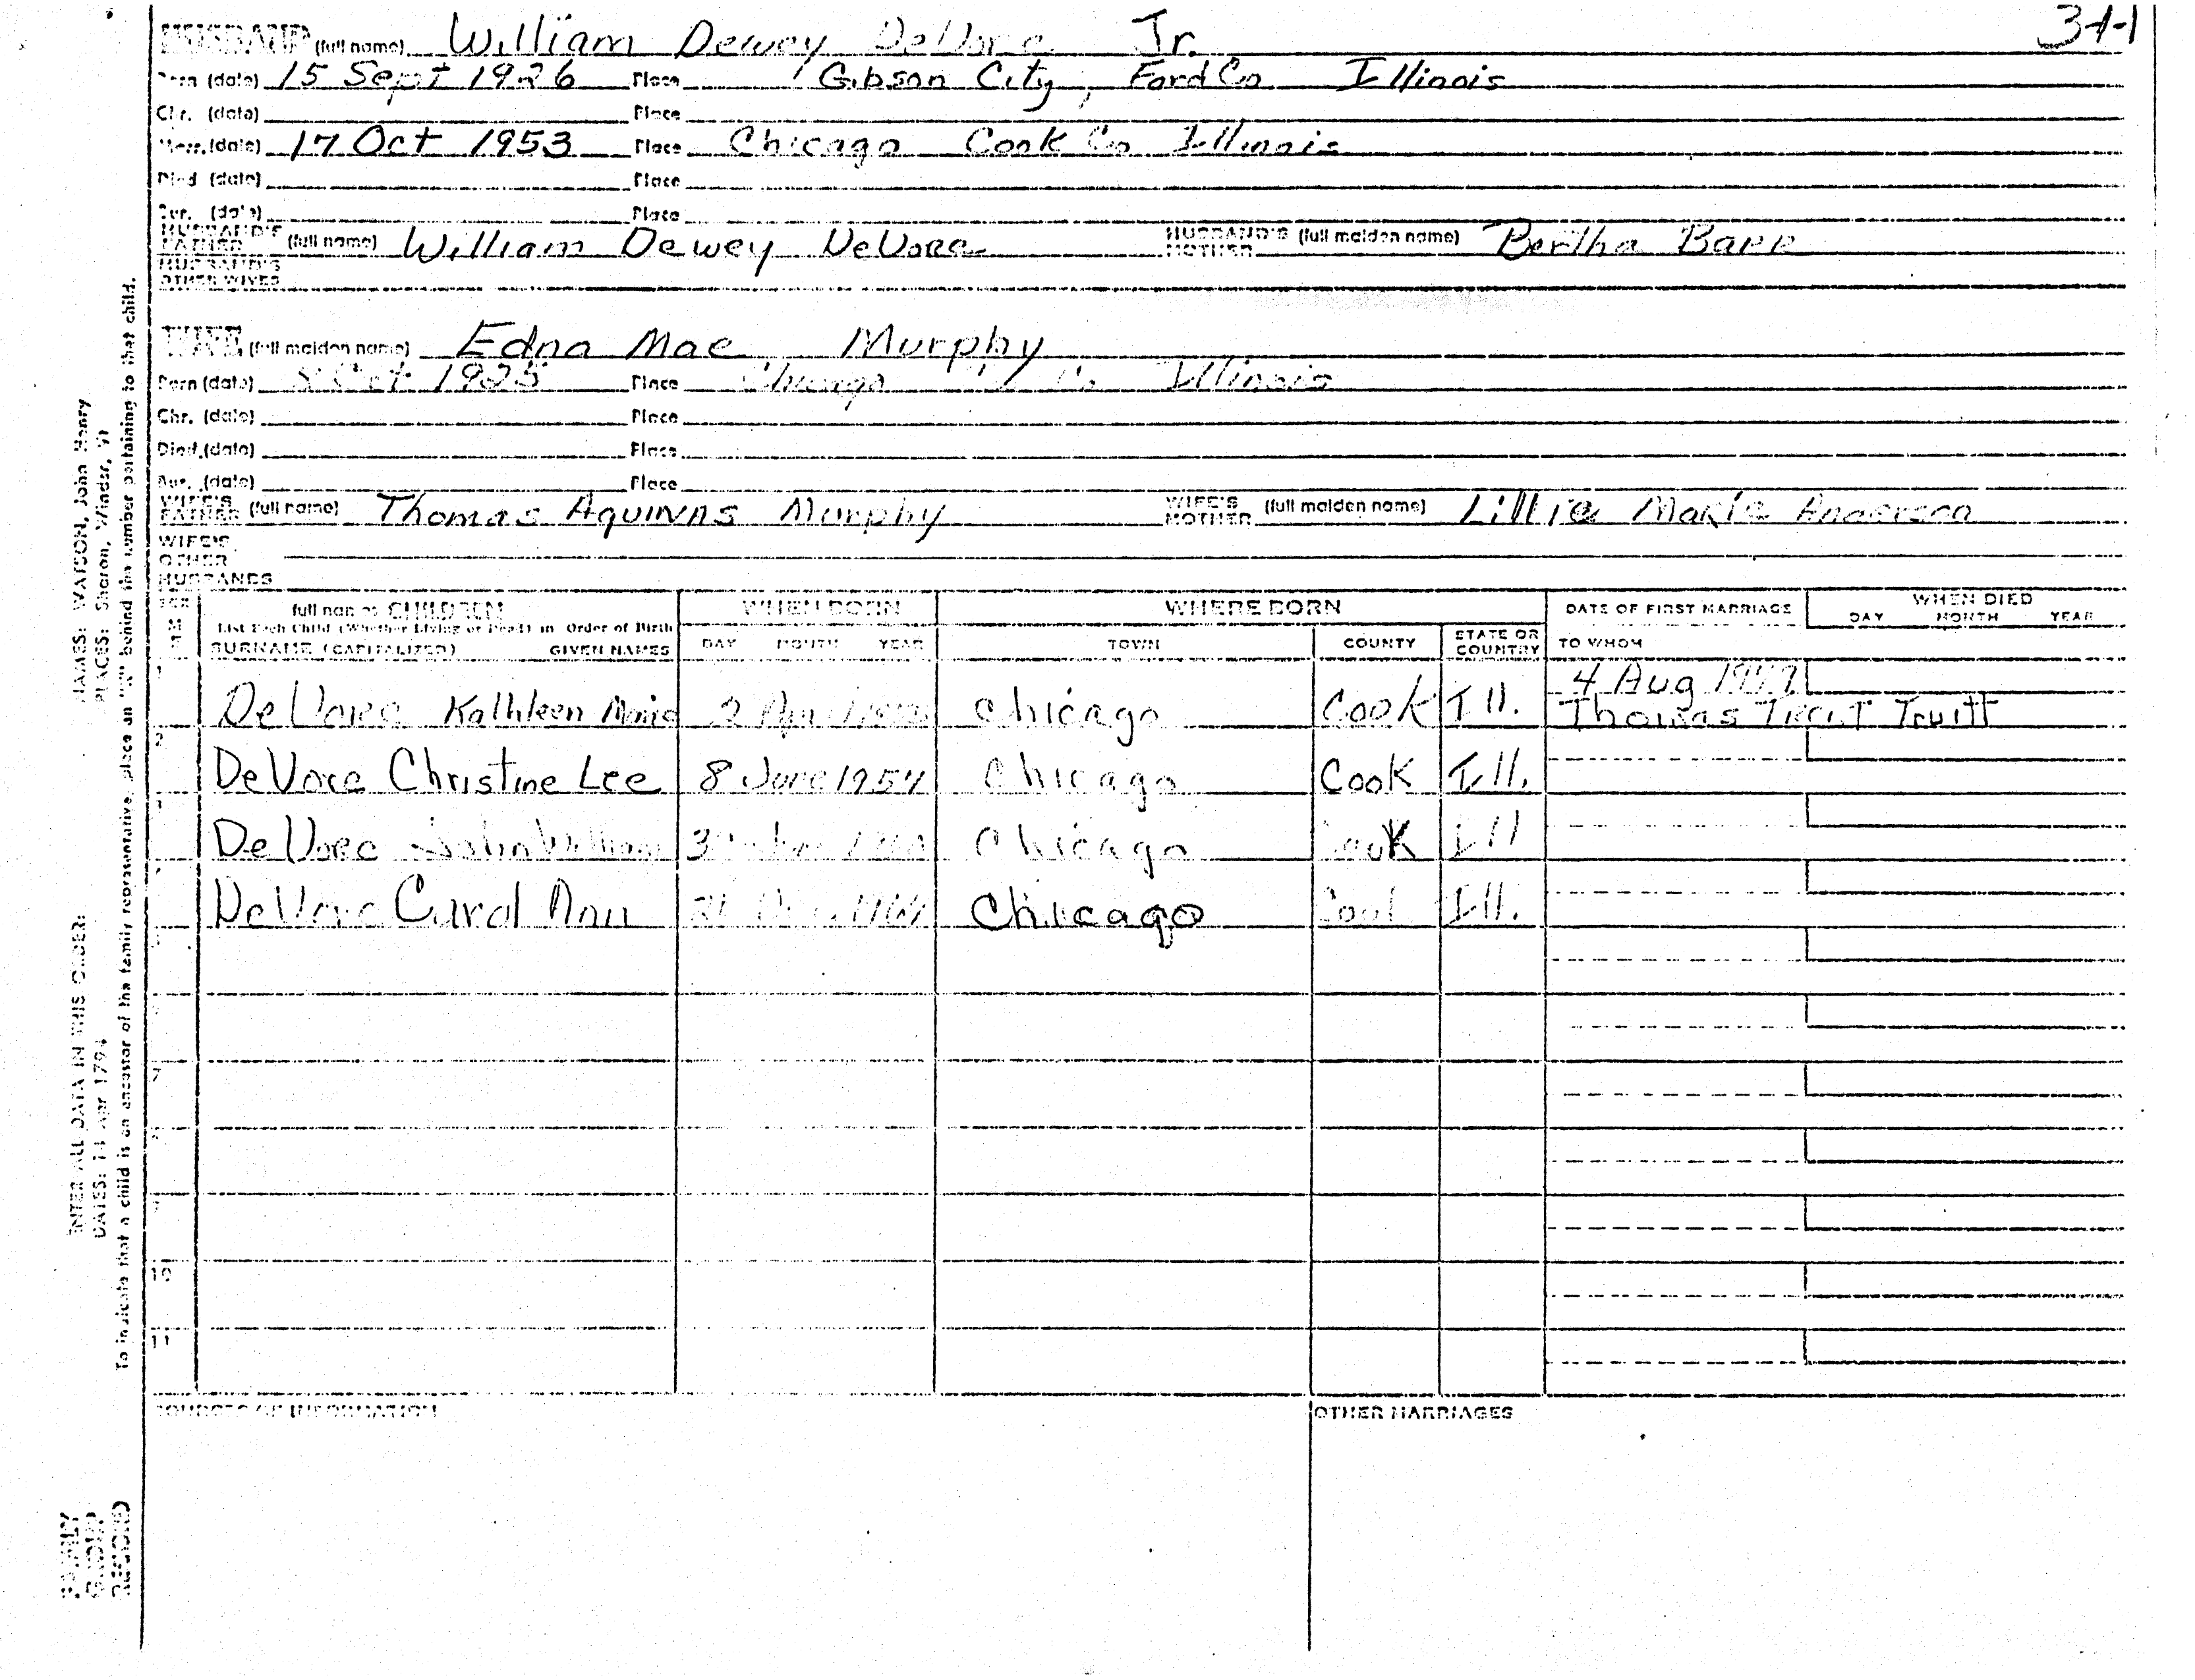 341
HUSBAND (full name) William Dewey DeVore Jr.
Born (date) 15 Sept 1926 Place Gibson City, Ford Co Illinois
Chr. (date) Place
Marr. (date) 17 Oct 1953 Place Chicago Cook Co Illinois
Died (date) Place
Bur. (date) Place
HUSBAND'S FATHER (full name) William Dewey DeVore HUSBAND'S MOTHER (full maiden name) Bertha Barr
HUSBAND'S OTHER WIVES
WIFE (full maiden name) Edna Mae Murphy
Born (date) Oct 1925 Place Chicago Co Illinois
Chr. (date) Place
Died (date) Place
Bur. (date) Place
WIFE'S FATHER (full name) Thomas Aquinas Murphy WIFE'S MOTHER (full maiden name) Lillie Marie Anderson
WIFE'S OTHER HUSBANDS
full names CHILDREN WHEN BORN WHERE BORN DATE OF FIRST MARRIAGE WHEN DIED
List Each Child (Whether Living or Dead) in Order of Birth DAY MONTH YEAR
SURNAME (CAPITALIZED) GIVEN NAMES DAY MONTH YEAR TOWN COUNTY STATE OR COUNTRY TO WHOM
1 4 Aug
DeVore Kathleen Marie 2 Chicago Cook Ill. Thomas Truitt
2
DeVore Christine Lee 8 June 1954 Chicago Cook Ill.
3
DeVore John William Chicago Cook Ill
4
DeVore Carol Ann Chicago Cook Ill.
5
7
10
11
SOURCES OF INFORMATION OTHER MARRIAGES
NAMES: WATSON, John Henry
PLACES: Sharon, Windsr, Vt
ENTER ALL DATA IN THIS ORDER:
DATES: 14 Apr 1794
To indicate that a child is an ancestor of the family representative, place an "X" behind the number pertaining to that child.
FAMILY GROUP RECORD